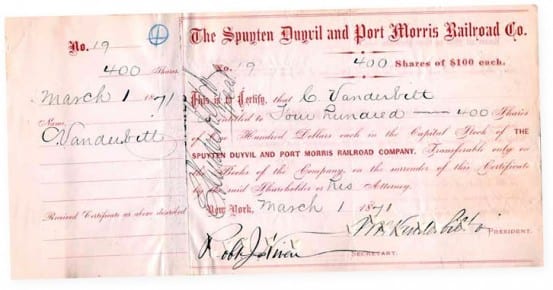 No. 19
400 Shares.
March 1 1871
Name,
C. Vanderbilt
Received Certificate as above described
The Spuyten Duyvil and Port Morris Railroad Co.
No. 19 400 Shares of $100 each.
This is to Certify, that C. Vanderbilt
is entitled to Four Hundred — 400 Shares
of One Hundred Dollars each in the Capital Stock of THE
SPUYTEN DUYVIL AND PORT MORRIS RAILROAD COMPANY. Transferable only on
the Books of the Company, on the surrender of this Certificate
by the said Shareholder or his Attorney.
New York, March 1 1871
PRESIDENT.
SECRETARY.